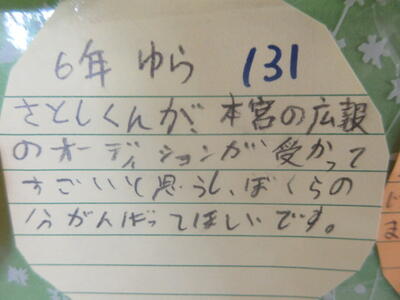 6年 ゆら 131
さとしくんが、本宮の広報
のオーディションが受かって
すごいと思うし、ぼくらの
分がんばってほしいです。